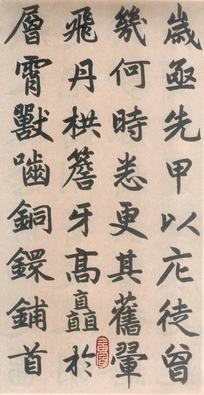 歲亟先甲以庀徒曾
幾何時悉更其舊翬
飛丹栱簷牙高矗於
層霄獸嚙銅鍰鋪首